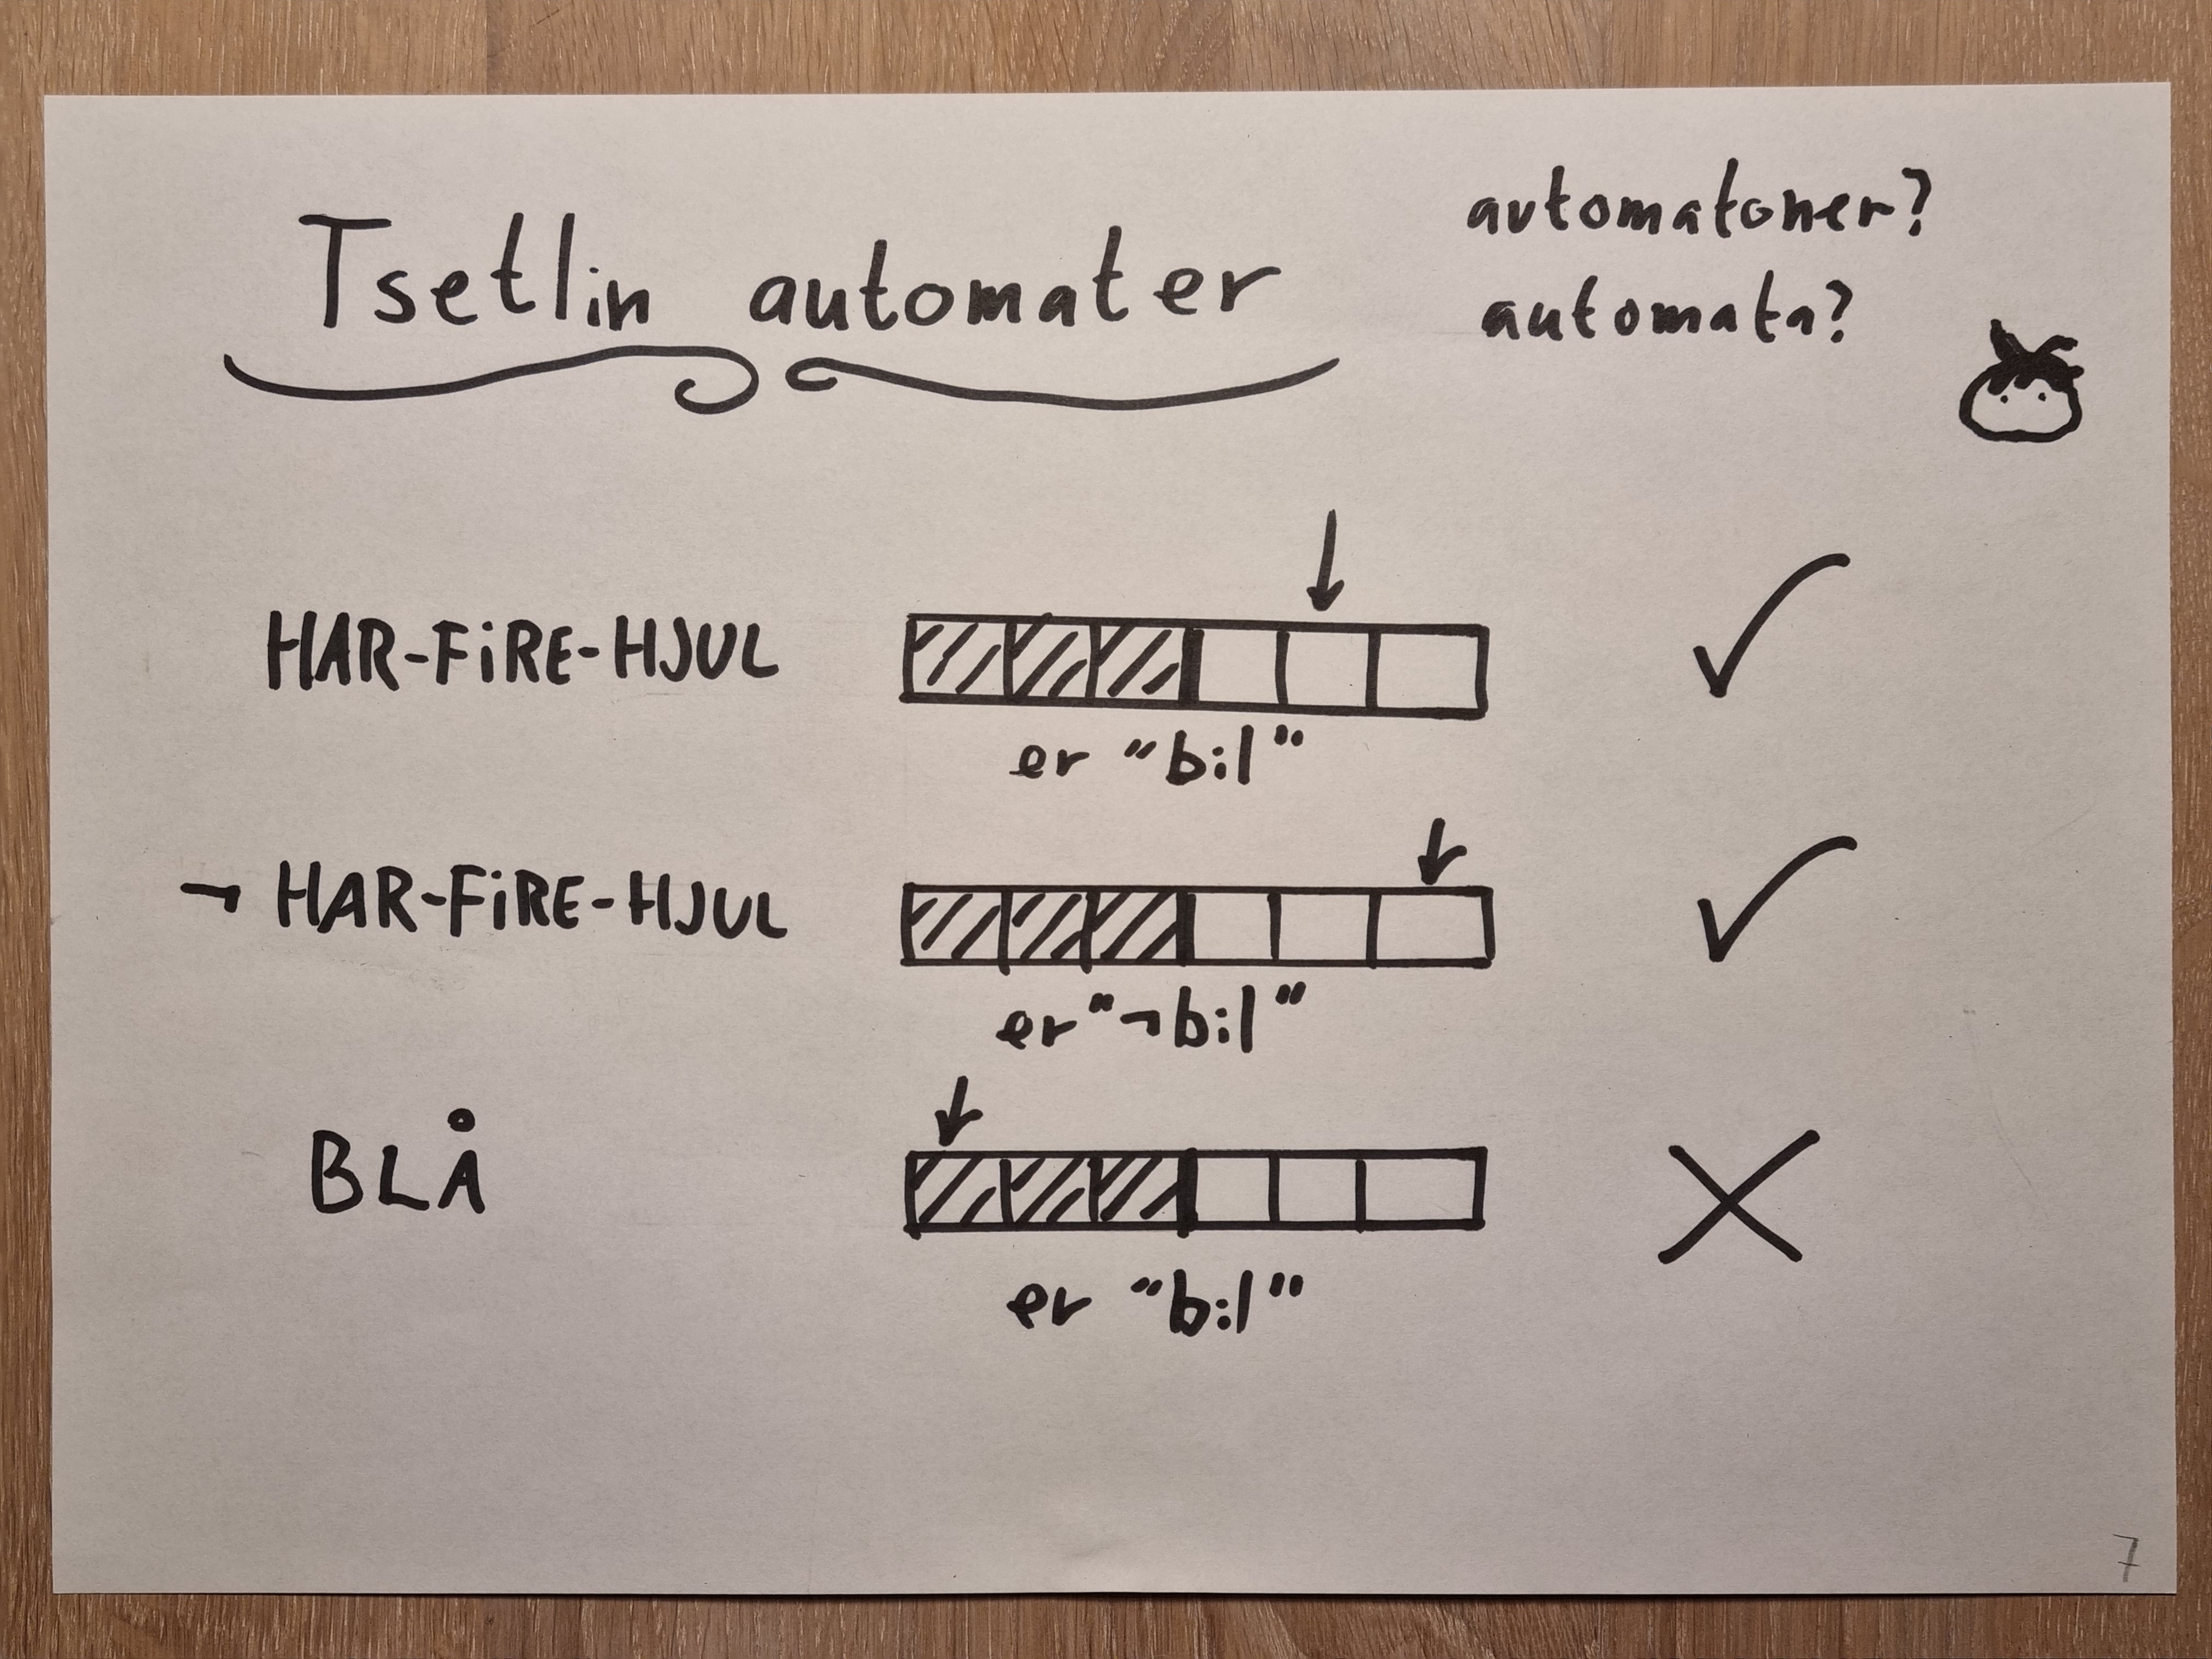 Tsetlin automater
automatoner?
automata?
HAR-FiRE-HJUL
er "bil"
¬ HAR-FiRE-HJUL
er "¬bil"
BLÅ
er "bil"
7